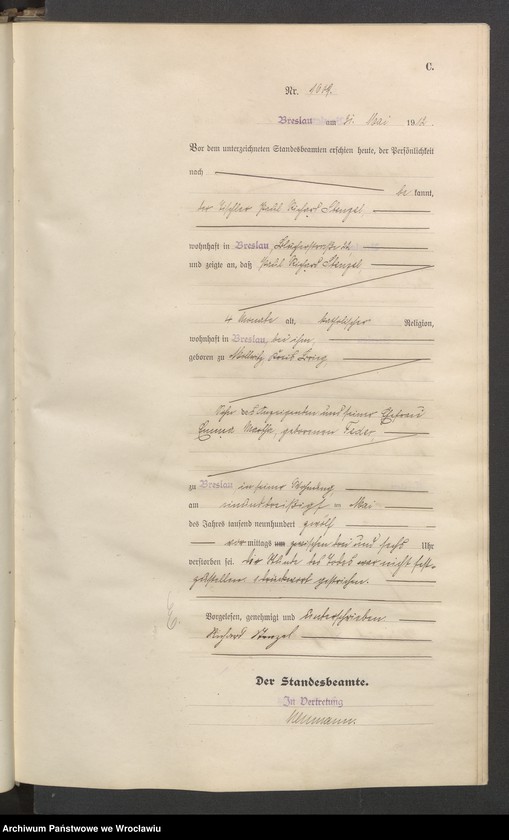 C.
Nr. 1619.
Breslau am 31. Mai 1912.
Vor dem unterzeichneten Standesbeamten erschien heute, der Persönlichkeit
nach
be kannt,
der Tischler Paul Richard Stenzel
wohnhaft in Breslau,
und zeigte an, daß Paul Richard Stenzel,
4 Monate alt, katholischer Religion,
wohnhaft in Breslau, bei ihm,
geboren zu Mollwitz, Kreis Brieg,
Sohn des Anzeigenden und seiner Ehefrau
Emma Martha, geborenen Feder,
zu Breslau in seiner Wohnung
am einunddreißigst en Mai
des Jahres tausend neunhundert zwölf
vor mittags um zwischen drei und sechs Uhr
verstorben sei. Die Stunde des Todes war nicht fest-
zustellen. 1 Druckwort gestrichen.
Vorgelesen, genehmigt und unterschrieben
Richard Stenzel
Der Standesbeamte.
In Vertretung
Neumann.
Archiwum Państwowe we Wrocławiu